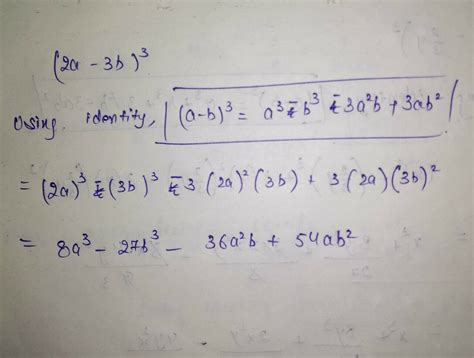 (2a - 3b)³
Using identity, (a-b)³ = a³ - b³ - 3a²b + 3ab²
= (2a)³ - (3b)³ - 3(2a)²(3b) + 3(2a)(3b)²
= 8a³ - 27b³ - 36a²b + 54ab²